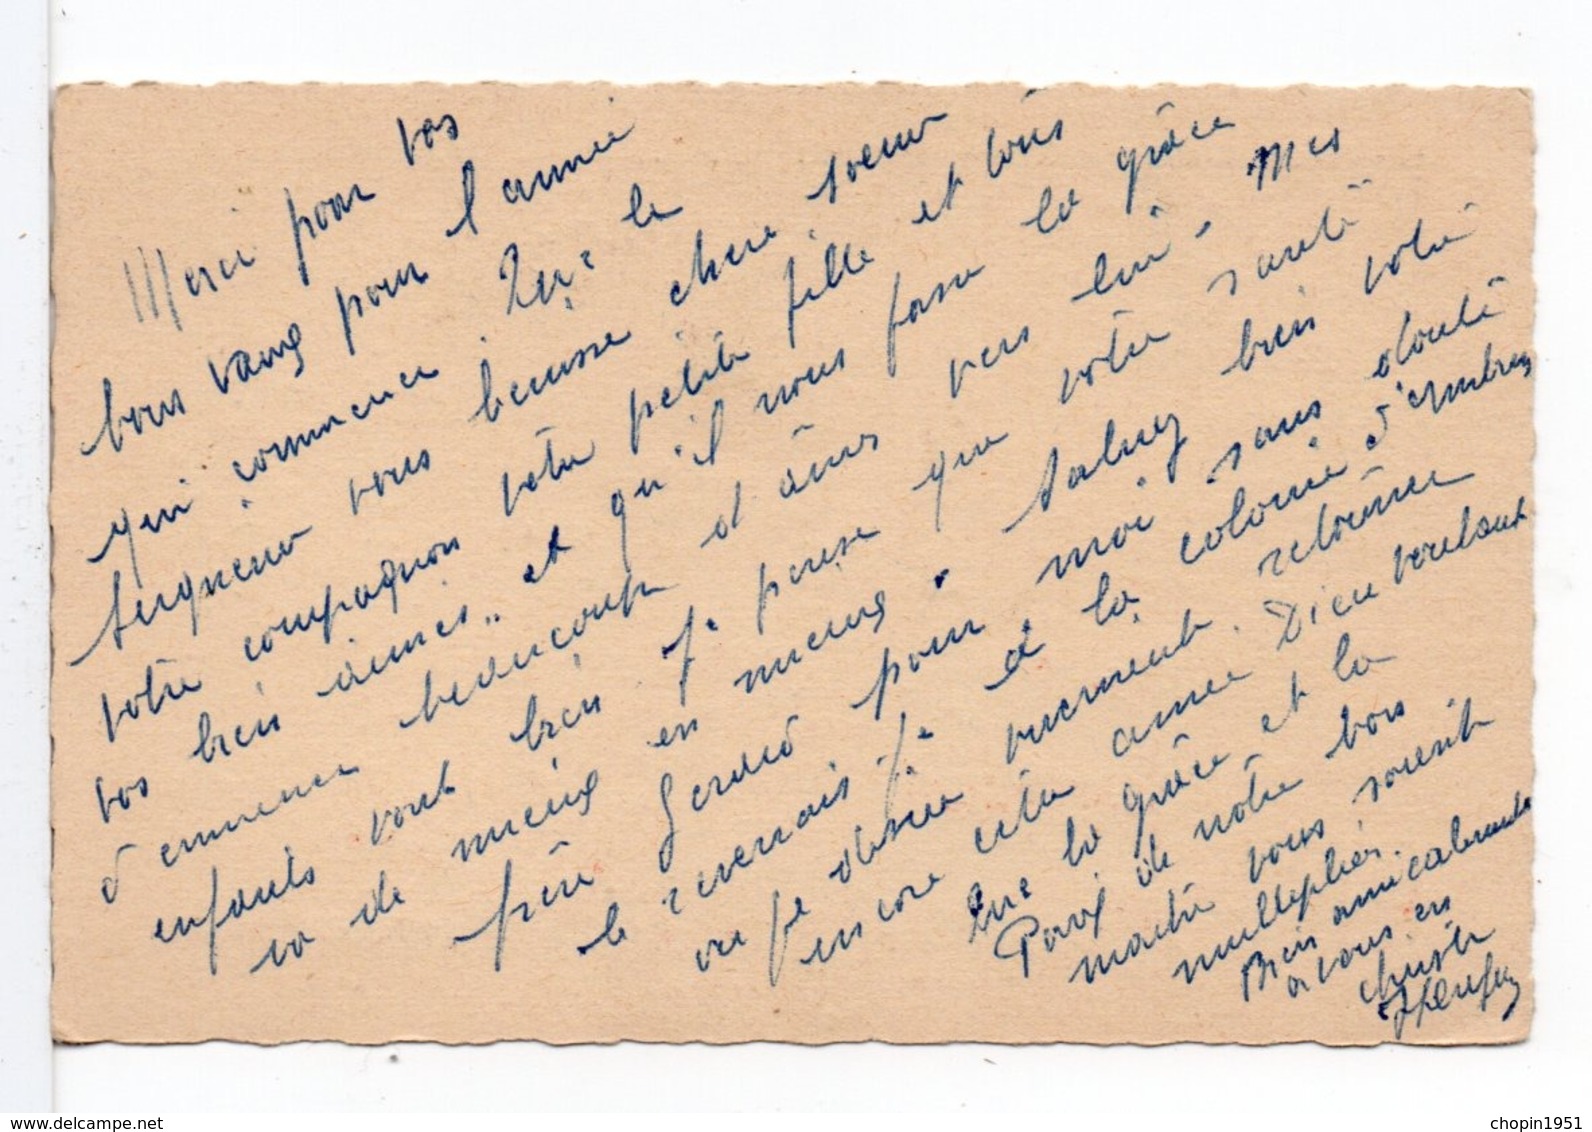 Merci pour vos
bons vœux pour l'année
qui commence. Que le
Seigneur vous bénisse chère soeur
votre compagnon votre petite fille et tous
vos bien aimés.. et qu'il nous fasse la grâce
d'emmener beaucoup d'âmes vers lui. Mes
enfants vont bien je pense que votre santé
va de mieux en mieux. Saluez bien votre
frère Gérard pour moi sans doute
le reverrais je à la colonie d'
ou je désire vivement retourner
encore cette année Dieu voulant
Que la grâce et la
Paix de notre bon
maitre vous soient
multipliés.
Bien amicalement
a vous en
christ
delcampe.net
chopin1951